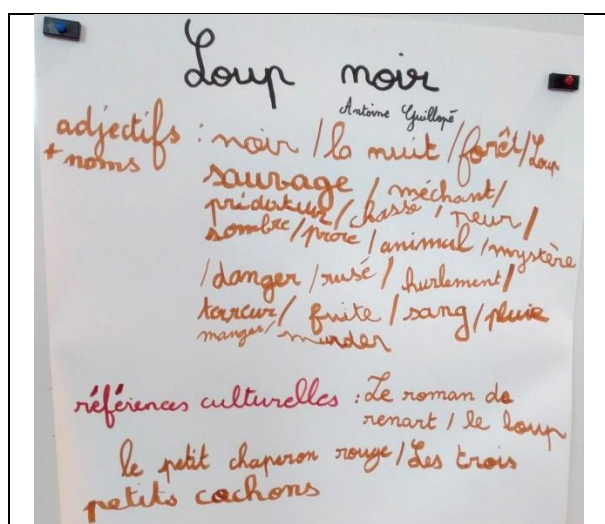 Loup noir
Antoine Guillopé
adjectifs : noir / la nuit / forêt / Loup
+ noms
sauvage / méchant /
prédateur / chasse / peur /
sombre / proie / animal / mystère
/ danger / rusé / hurlement /
terreur / fuite / sang / pluie
manger / murder
références culturelles : Le roman de
renart / le loup
le petit chaperon rouge / Les trois
petits cochons